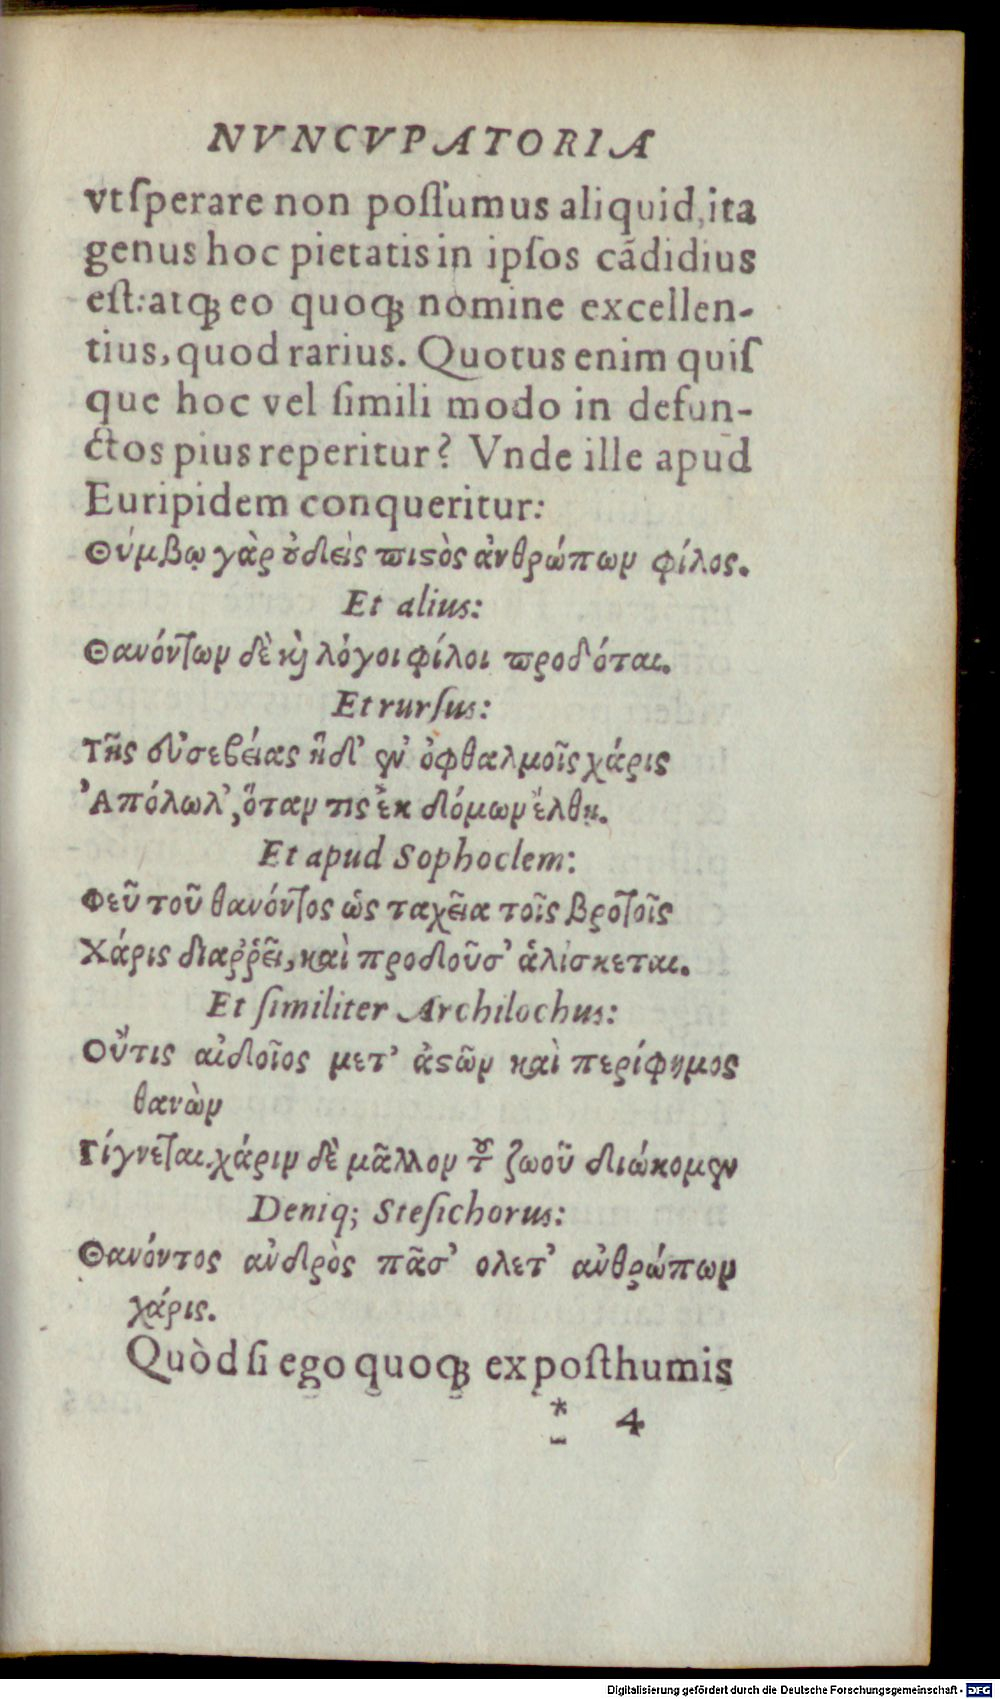 NVNCVPATORIA
vt sperare non possumus aliquid, ita
genus hoc pietatis in ipsos cādidius
est: atq; eo quoq; nomine excellen-
tius, quod rarius. Quotus enim quis
que hoc vel simili modo in defun-
ctos pius reperitur? Vnde ille apud
Euripidem conqueritur:
Θύμβῳ γὰρ οὐδεὶς πιστὸς ἀνθρώπων φίλος.
Et alius:
Θανόντων δὲ καὶ λόγοι φίλοι προδόται.
Et rursus:
Τῆς δυσσεβείας ἡδ' ἐν ὀφθαλμοῖς χάρις
Ἀπόλωλ', ὅταν τις ἐκ δόμων ἔλθῃ.
Et apud Sophoclem:
Φεῦ τοῦ θανόντος ὡς ταχεῖα τοῖς βροτοῖς
Χάρις διαῤῥεῖ, καὶ προδοῦσ' ἁλίσκεται.
Et similiter Archilochus:
Οὔτις αἰδοῖος μετ' ἀστῶν καὶ περίφημος
θανὼν
Γίγνεται. χάριν δὲ μᾶλλον τοῦ ζωοῦ διώκομεν
Deniq; Stesichorus:
Θανόντος ἀνδρὸς πᾶσ' ολετ' ἀνθρώπων
χάρις.
Quòd si ego quoq; ex posthumis
* 4
Digitalisierung gefördert durch die Deutsche Forschungsgemeinschaft - DFG